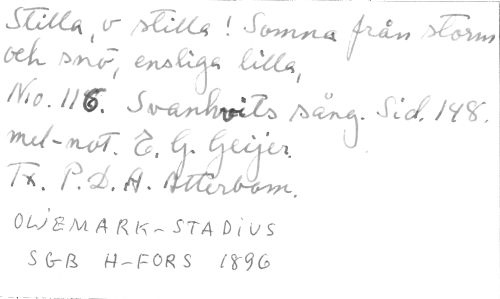 Stilla, o stilla! Somna från storm
och snö, ensliga lilla,
No. 116. Svanhvits sång. Sid. 148.
mel-not. E. G. Geijer.
Tx. P. D. A. Atterbom.
OLJEMARK-STADIUS
SGB H-FORS 1896